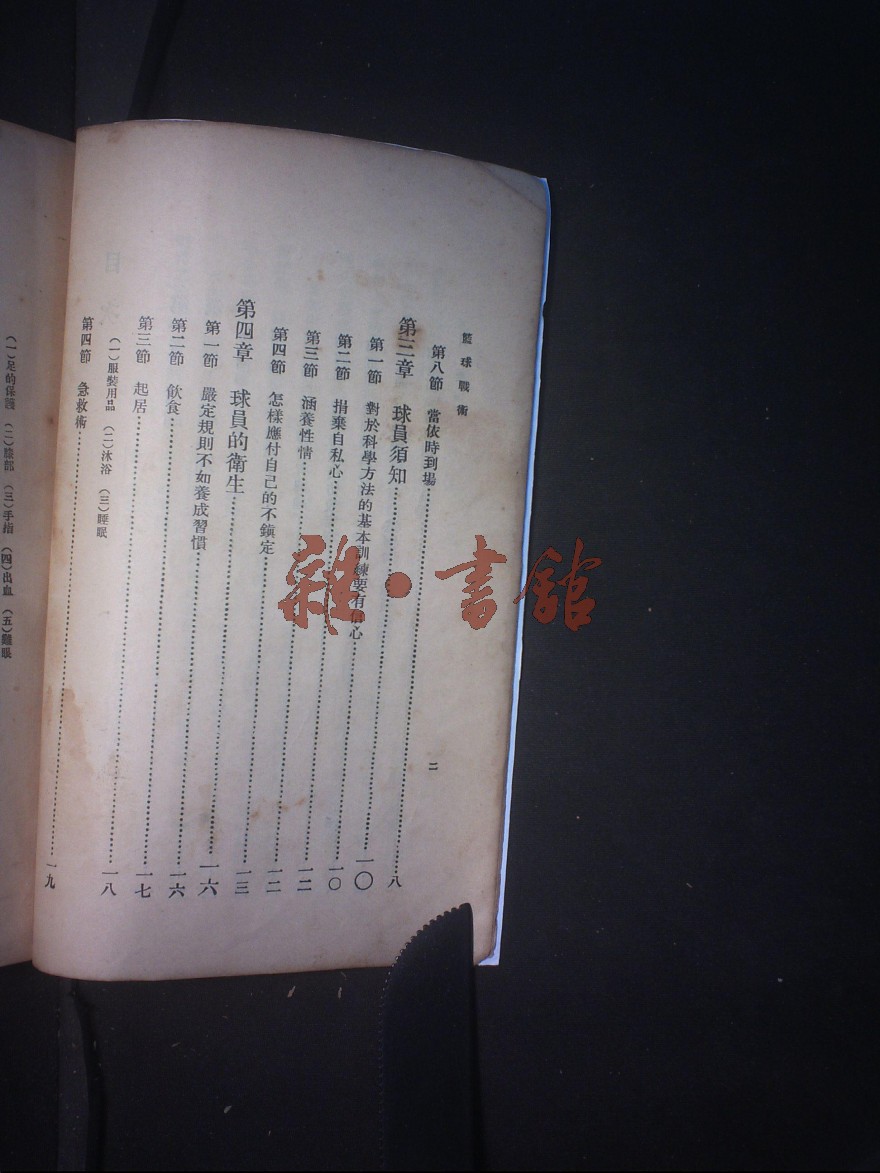 籃球戰術
二
第八節 當依時到場……八
第三章 球員須知……一〇
第一節 對於科學方法的基本訓練要有信心……一〇
第二節 捐棄自私心……一二
第三節 涵養性情……一二
第四節 怎樣應付自己的不鎮定……一三
第四章 球員的衛生……一六
第一節 嚴定規則不如養成習慣……一六
第二節 飲食……一七
第三節 起居……一八
(一)服裝用品 (二)沐浴 (三)睡眠
第四節 急救術……一九
(一)足的保護 (二) (三)手指 (四)出血 (五)雞眼
雜·書館